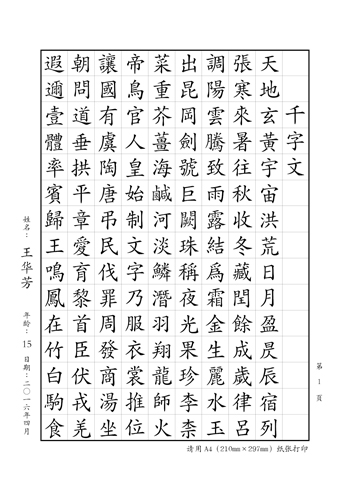 千字文
天地玄黃宇宙洪荒日月盈昃辰宿列
張寒來暑往秋收冬藏閏餘成歲律呂
調陽雲騰致雨露結爲霜金生麗水玉
出昆岡劍號巨闕珠稱夜光果珍李柰
菜重芥薑海鹹河淡鱗潛羽翔龍師火
帝鳥官人皇始制文字乃服衣裳推位
讓國有虞陶唐弔民伐罪周發商湯坐
朝問道垂拱平章愛育黎首臣伏戎羌
遐邇壹體率賓歸王鳴鳳在竹白駒食
姓名：王华芳 年龄：15 日期：二〇一六年四月
第1頁
请用A4（210mm×297mm）纸张打印